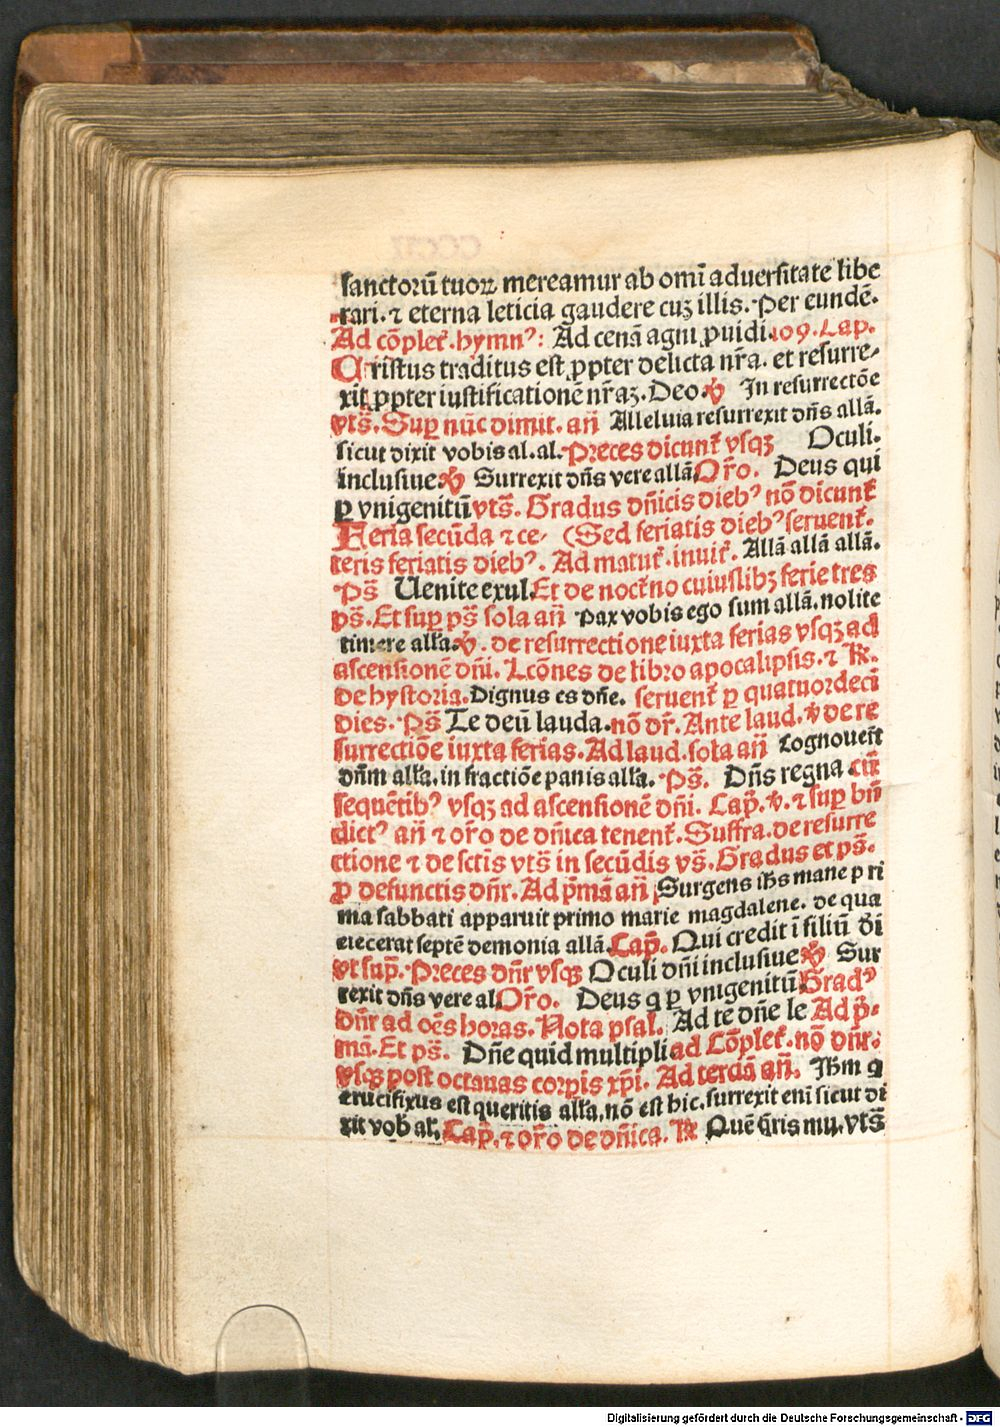 sanctorū tuoꝝ mereamur ab omī aduersitate libe
rari. ⁊ eterna leticia gaudere cuꝫ illis. Per eundē.
Ad cōpleť. hymnꝰ: Ad cenā agni ꝓuidi. 109. Cap.
Cristus traditus est ꝓpter delicta nr̄a. et resurre-
xit ꝓpter iustificationē nr̄aꝫ. Deo. ℣ In resurrectōe
vts̄. Suꝑ nūc dimit. an̄ Alleluia resurrexit dn̄s allā.
sicut dixit vobis al. al. Preces dicunť vsqꝫ Oculi.
inclusiue ℣ Surrexit dn̄s vere allā Or̄o. Deus qui
ꝑ vnigenitū vts̄. Gradus dn̄icis diebꝰ nō dicunť
Feria secūda ⁊ ce- (Sed feriatis diebꝰ seruenť.
teris feriatis diebꝰ. Ad matuť. inuiť. Allā allā allā.
Ps̄ Uenite exul. Et de nocťno cuiuslibꝫ ferie tres
ps̄. Et suꝑ ps̄ sola an̄ Pax vobis ego sum allā. nolite
timere alľa. ℣. de resurrectione iuxta ferias vsqꝫ ad
ascensionē dn̄i. Lcōnes de libro apocalipsis. ⁊ ℟.
de hystoria. Dignus es dn̄e. seruenť ꝑ quatuordecī
dies. Ps̄ Te deū lauda. nō dr̄. Ante laud. ℣ de re
surrectiōe iuxta ferias. Ad laud. sola an̄ Cognouer̄t
dn̄m alľa. in fractiōe panis alľa. Ps̄. Dn̄s regna cū
sequētibꝰ vsqꝫ ad ascensionē dn̄i. Cap̄. ℣. ⁊ suꝑ bn̄
dictꝰ an̄ ⁊ or̄o de dn̄ica tenenť. Suffra. de resurre
ctione ⁊ de sctīs vts̄ in secūdis vs̄. Gradus et ps̄.
ꝓ defunctis dn̄r. Ad p̄mā an̄ Surgens ih̄s mane p ri
ma sabbati apparuit primo marie magdalene. de qua
eiecerat septē demonia allā. Cap̄. Qui credit ī filiū dī
vt sup̄. Preces dn̄r vsqꝫ Oculi dn̄i inclusiue ℣ Sur
rexit dn̄s vere al. Or̄o. Deus q ꝑ vnigenitū Gradꝰ
dn̄r ad oēs horas. Nota psal. Ad te dn̄e le Ad p̄-
mā. Et ps̄. Dn̄e quid multipli ad Cōpleť. nō dn̄r.
vsqꝫ post octauas corpīs xp̄i. Ad terciā an̄. Ihm q
crucifixus est queritis alľa. nō est hic. surrexit enī sicut di
xit vob̄ al. Cap̄. ⁊ or̄o de dn̄ica. ℟ Quē q̄ris mu. vts̄
Digitalisierung gefördert durch die Deutsche Forschungsgemeinschaft - DFG